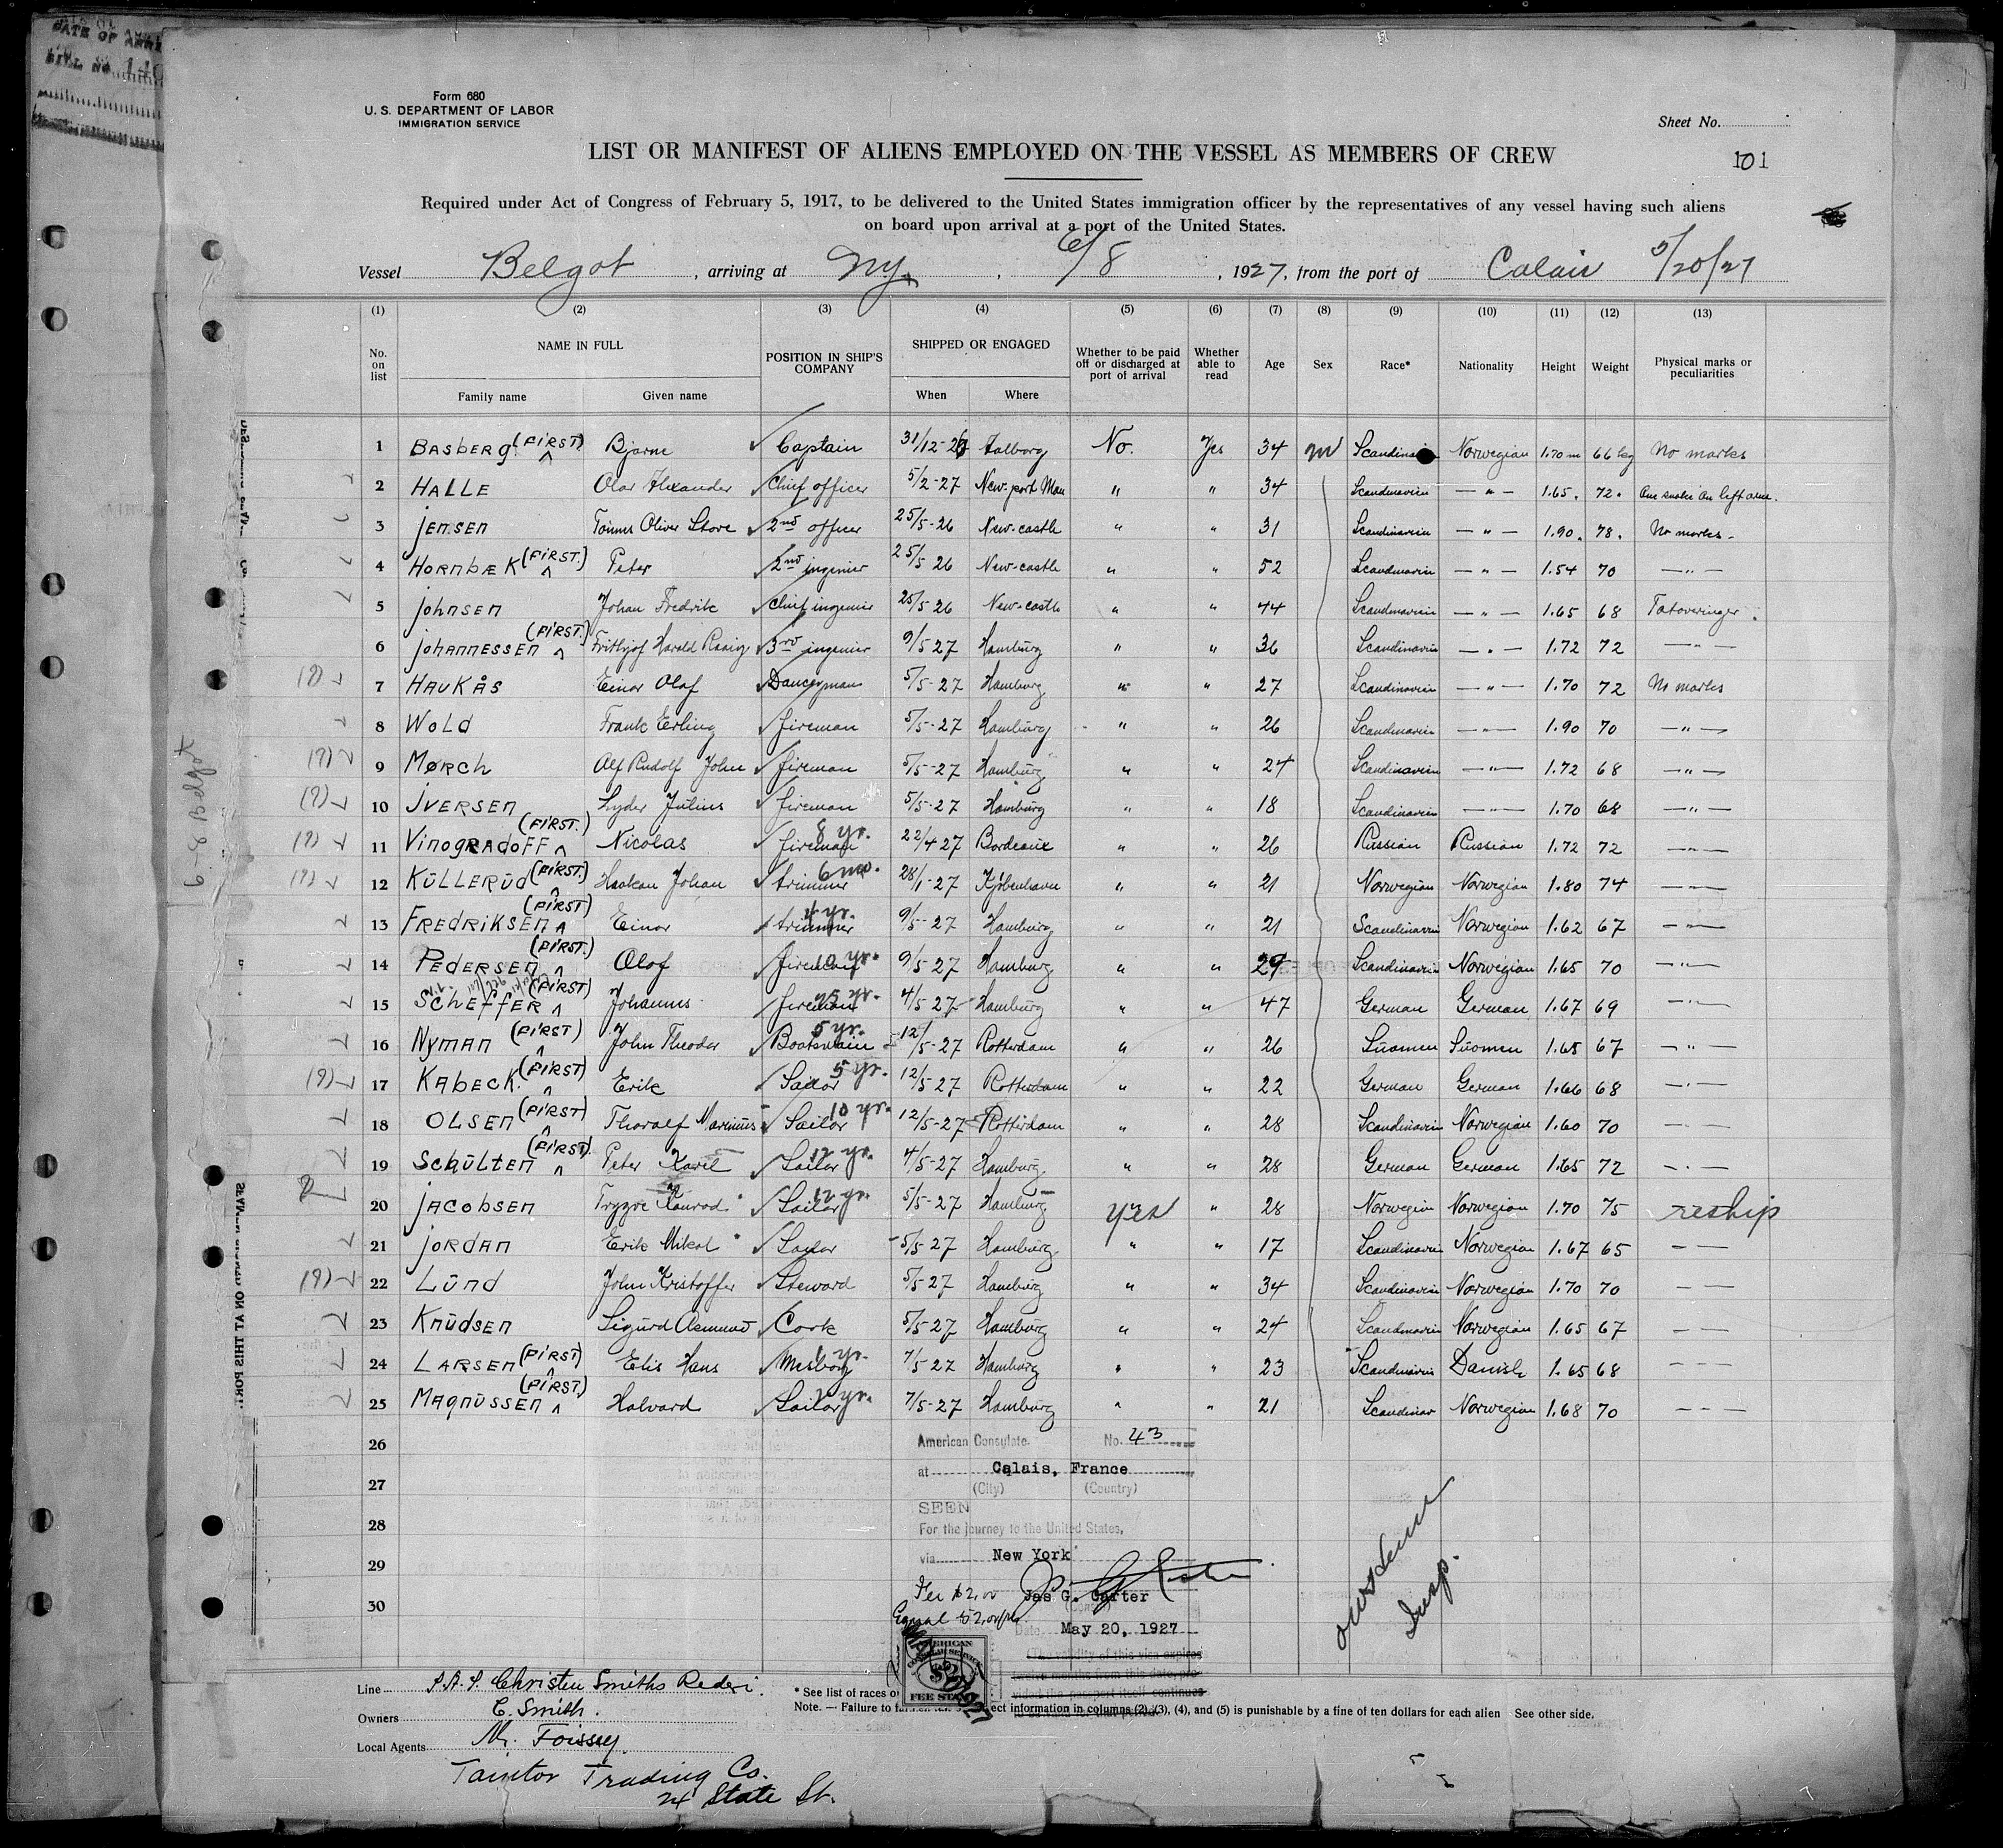 DATE OF ARRI
Form 680
U. S. DEPARTMENT OF LABOR
IMMIGRATION SERVICE
Sheet No.
LIST OR MANIFEST OF ALIENS EMPLOYED ON THE VESSEL AS MEMBERS OF CREW
101
Required under Act of Congress of February 5, 1917, to be delivered to the United States immigration officer by the representatives of any vessel having such aliens
on board upon arrival at a port of the United States.
Vessel Belgot, arriving at N.Y., 6/8, 1927, from the port of Calais 5/20/27
(1) (2) (3) (4) (5) (6) (7) (8) (9) (10) (11) (12) (13)
No. on list NAME IN FULL POSITION IN SHIP'S COMPANY SHIPPED OR ENGAGED Whether to be paid off or discharged at port of arrival Whether able to read Age Sex Race* Nationality Height Weight Physical marks or peculiarities
Family name Given name When Where
1 Basberg (FIRST) Bjarne Captain 31/12-26 Aalborg No. Yes 34 m Scandinavi Norwegian 1.70 m 66 kg No marks
2 Halle Olav Alexander Chief officer 5/2-27 New-port Mon " " 34 Scandinavien — " — 1.65. 72. on left arm.
3 Jensen Oliver 2nd officer 25/5-26 New-castle " " 31 Scandinavien — " — 1.90. 78. No marks -
4 Hornbæk (FIRST.) Peter 2nd ingenier 25/5 26 New-castle " " 52 Scandinavien — " — 1.54 70 — " —
5 Johnsen Johan Fredrik Chief ingenier 25/5 26 New-castle " " 44 Scandinavien — " — 1.65 68 Tatoveringer.
6 Johannessen (FIRST.) Frithjof Harold 3rd ingenier 9/5 27 Hamburg " " 36 Scandinavien — " — 1.72 72 — " —
7 Haukås Einar Olaf 5/5-27 Hamburg " " 27 Scandinavien — " — 1.70 72 No marks
8 Wold Frank Erling fireman 5/5-27 Hamburg " " 26 Scandinavien — " — 1.90 70 — " —
9 Mørch Alf Rudolf John fireman 5/5-27 Hamburg " " 24 Scandinavien — " — 1.72 68 — " —
10 Iversen Lyder Julius fireman 5/5-27 Hamburg " " 18 Scandinavien — " — 1.70 68 — " —
11 Vinogradoff (FIRST.) Nicolas fireman 8 yr. 22/4 27 Bordeaux " " 26 Russian Russian 1.72 72 — " —
12 Küllerüd (FIRST.) Haakon Johan trimmer 6 mo. 28/1-27 Kjøbenhavn " " 21 Norwegian Norwegian 1.80 74 — " —
13 Fredriksen (FIRST) Einar trimmer 4 yr. 9/5-27 Hamburg " " 21 Scandinavien Norwegian 1.62 67 — " —
14 Pedersen (FIRST.) Olaf fireman 10 yr. 9/5 27 Hamburg " " 29 Scandinavien Norwegian 1.65 70 — " —
15 Scheffer (FIRST) Johannes fireman 25 yr. 4/5-27 Hamburg " " 47 German German 1.67 69 — " —
16 Nyman (FIRST) John Theodor Boatswain 5 yr. 12/5-27 Rotterdam " " 26 Suomen Suomen 1.65 67 — " —
17 Kabeck (FIRST) Erik Sailor 5 yr. 12/5-27 Rotterdam " " 22 German German 1.66 68 — " —
18 Olsen (FIRST) Thoralf Marinius Sailor 10 yr. 12/5-27 Rotterdam " " 28 Scandinavien Norwegian 1.60 70 — " —
19 Schülten (FIRST) Peter Karl Sailor 12 yr. 4/5-27 Hamburg " " 28 German German 1.65 72 — " —
20 Jacobsen Trygve Konrad Sailor 12 yr. 5/5-27 Hamburg yes " 28 Norwegien Norwegian 1.70 75 reship
21 Jordan Erik Mikal Sailor 5/5-27 Hamburg " " 17 Scandinavien Norwegian 1.67 65 — —
22 Lünd John Kristoffer Steward 5/5-27 Hamburg " " 34 Scandinavien Norwegian 1.70 70 — —
23 Knüdsen Sigurd Asmund Cook 5/5-27 Hamburg " " 24 Scandinavien Norwegian 1.65 67 — —
24 Larsen (FIRST) Elis Hans Messboy 1 yr. 7/5-27 Hamburg " " 23 Scandinavien Danish 1.65 68 — —
25 Magnüssen (FIRST) Halvard Sailor yr. 7/5-27 Hamburg " " 21 Scandinav Norwegian 1.68 70 — —
26 American Consulate. No. 43
27 at Calais, France
(City) (Country)
SEEN
28 For the journey to the United States,
29 via New York
Fee $2.00 Jas G. Carter
30 Equal
Date May 20, 1927
The validity of this visa expires
twelve months from this date, pro-
vided the passport itself continues
Insp.
AMERICAN CONSULAR SERVICE
FEE STAMP
Line S.A.S. Christen Smiths Rederi.
Owners C. Smith.
Local Agents M. Foissey
Taintor Trading Co.
24 State St.
* See list of races o
Note. — Failure to f ect information in columns (2), (3), (4), and (5) is punishable by a fine of ten dollars for each alien See other side.
6-8 Belgot